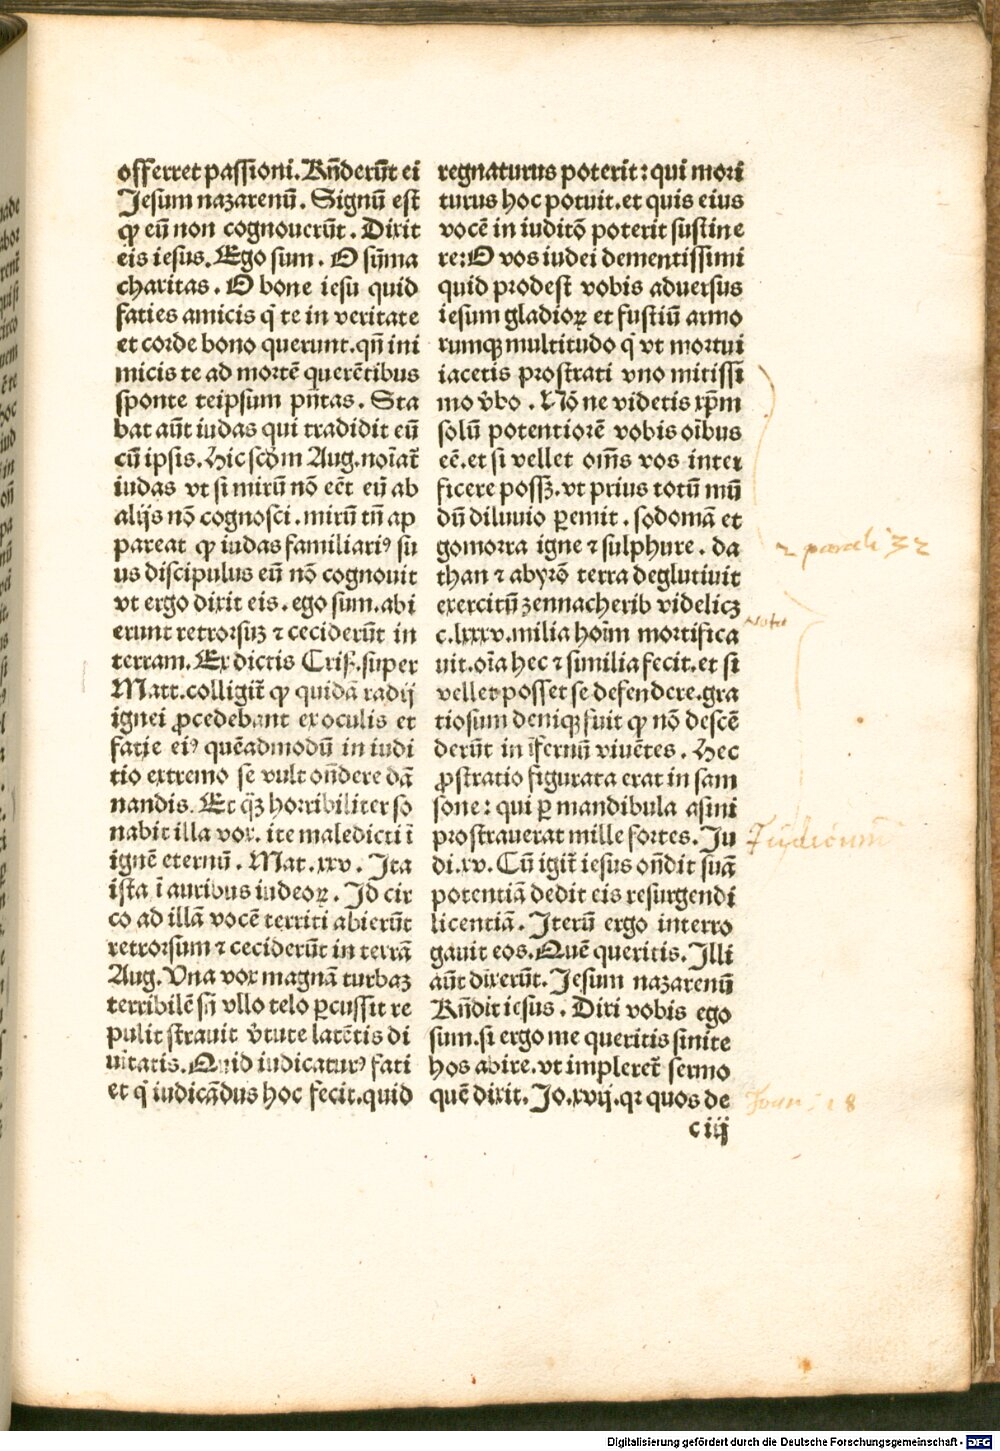 offerret passioni. Rñderũt ei
Jesum nazarenũ. Signũ est
ꝙ eũ non cognouerũt. Dixit
eis iesus. Ego sum. O sũma
charitas. O bone iesu quid
faties amicis q̇ te in veritate
et corde bono querunt. qñ ini
micis te ad mortẽ querẽtibus
sponte teipsum pñtas. Sta
bat aũt iudas qui tradidit eũ
cũ ipsis. Hic scḋm Aug. noĩat᷑
iudas vt si mirũ nõ eẽt eũ ab
alijs nõ cognosci. mirũ tñ ap
pareat ꝙ iudas familiariꝰ su
us discipulus eũ nõ cognouit
vt ergo dixit eis. ego sum. abi
erunt retrorsuꝫ ⁊ ceciderũt in
terram. Ex dictis Cris. super
Matt. colligit᷑ ꝙ quidã radij
ignei ꝓcedebant ex oculis et
fatie eiꝰ quẽadmodũ in iudi
tio extremo se vult oñdere dã
nandis. Et q̃ꝫ horribiliter so
nabit illa vox. ite maledicti ĩ
ignẽ eternũ. Mat. xxv. Ita
ista ĩ auribus iudeoꝝ. Id cir
co ad illã vocẽ territi abierũt
retrorsum ⁊ ceciderũt in terrã
Aug. Vna vox magnã turbaꝫ
terribilẽ sñ vllo telo ꝑcussit re
pulit strauit v̇tute latẽtis di
uitatis. Quid iudicaturꝰ fati
et q̇ iudicãdus hoc fecit. quid
regnaturus poterit: qui mori
turus hoc potuit. et quis eius
vocẽ in iuditõ poterit sustine
re: O vos iudei dementissimi
quid prodest vobis aduersus
iesum gladioꝝ et fustiũ armo
rumqꝫ multitudo q̇ vt mortui
iacetis prostrati vno mitissĩ
mo v̇bo. Nõne videtis xp̃m
solũ potentiorẽ vobis oĩbus
eẽ. et si vellet om̃s vos inter
ficere possꝫ. vt prius totũ mũ
dũ diluuio ꝑemit. sodomã et
gomorra igne ⁊ sulphure. da
than ⁊ abyrõ terra deglutiuit
exercitũ zennacherib videlicꝫ
c.lxxxv. milia hoĩm mortifica
uit. oĩa hec ⁊ similia fecit. et si
vellet posset se defendere. gra
tiosum deniqꝫ fuit ꝙ nõ descẽ
derũt in ĩfernũ viuẽtes. Hec
ꝓstratio figurata erat in sam
sone: qui ꝑ mandibula asini
prostrauerat mille fortes. Ju
di. xv. Cũ igit᷑ iesus oñdit suã
potentiã dedit eis resurgendi
licentiã. Iterũ ergo interro
gauit eos. Quẽ queritis. Illi
aũt dixerũt. Jesum nazarenũ
Rñdit iesus. Dixi vobis ego
sum. si ergo me queritis sinite
hos abire. vt impleret᷑ sermo
quẽ dixit. Jo. xvij. qꝛ quos de
c iij
2 parali 32
Nota
Judicum
Joan: 18
Digitalisierung gefördert durch die Deutsche Forschungsgemeinschaft - DFG